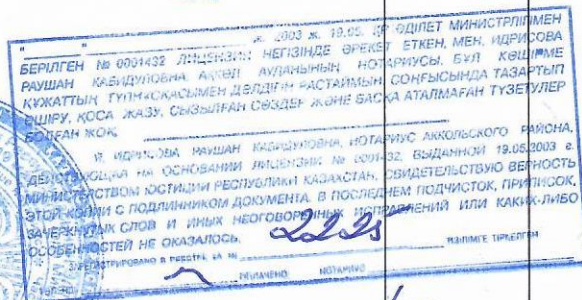 " " ж. 2003 ж. 19.05. ҚР ӘДІЛЕТ МИНИСТРЛІГІМЕН
БЕРІЛГЕН № 0001432 ЛИЦЕНЗИЯ НЕГІЗІНДЕ ӘРЕКЕТ ЕТКЕН, МЕН, ИДРИСОВА
РАУШАН КАБИДУЛОВНА, АККӨЛ АУДАНЫНЫҢ НОТАРИУСЫ, БҰЛ КӨШІРМЕ
ҚҰЖАТТЫҢ ТҮПНҰСҚАСЫМЕН ДӘЛДІГІН РАСТАЙМЫН. СОҢҒЫСЫНДА ТАЗАРТЫП
ӨШІРУ, ҚОСА ЖАЗУ, СЫЗЫЛҒАН СӨЗДЕР ЖӘНЕ БАСҚА АТАЛМАҒАН ТҮЗЕТУЛЕР
БОЛҒАН ЖОҚ.
Я, ИДРИСОВА РАУШАН КАБИДУЛОВНА, НОТАРИУС АККОЛЬСКОГО РАЙОНА,
ДЕЙСТВУЮЩАЯ НА ОСНОВАНИИ ЛИЦЕНЗИИ № 0001432, ВЫДАННОЙ 19.05.2003 г.
МИНИСТЕРСТВОМ ЮСТИЦИИ РЕСПУБЛИКИ КАЗАХСТАН, СВИДЕТЕЛЬСТВУЮ ВЕРНОСТЬ
ЭТОЙ КОПИИ С ПОДЛИННИКОМ ДОКУМЕНТА. В ПОСЛЕДНЕМ ПОДЧИСТОК, ПРИПИСОК,
ЗАЧЕРКНУТЫХ СЛОВ И ИНЫХ НЕОГОВОРЕННЫХ ИСПРАВЛЕНИЙ ИЛИ КАКИХ-ЛИБО
ОСОБЕННОСТЕЙ НЕ ОКАЗАЛОСЬ.
ЗАРЕГИСТРИРОВАНО В РЕЕСТРЕ ЗА № 2225 ТІЗІЛІМГЕ ТІРКЕЛГЕН
ОПЛАЧЕНО НОТАРИУС